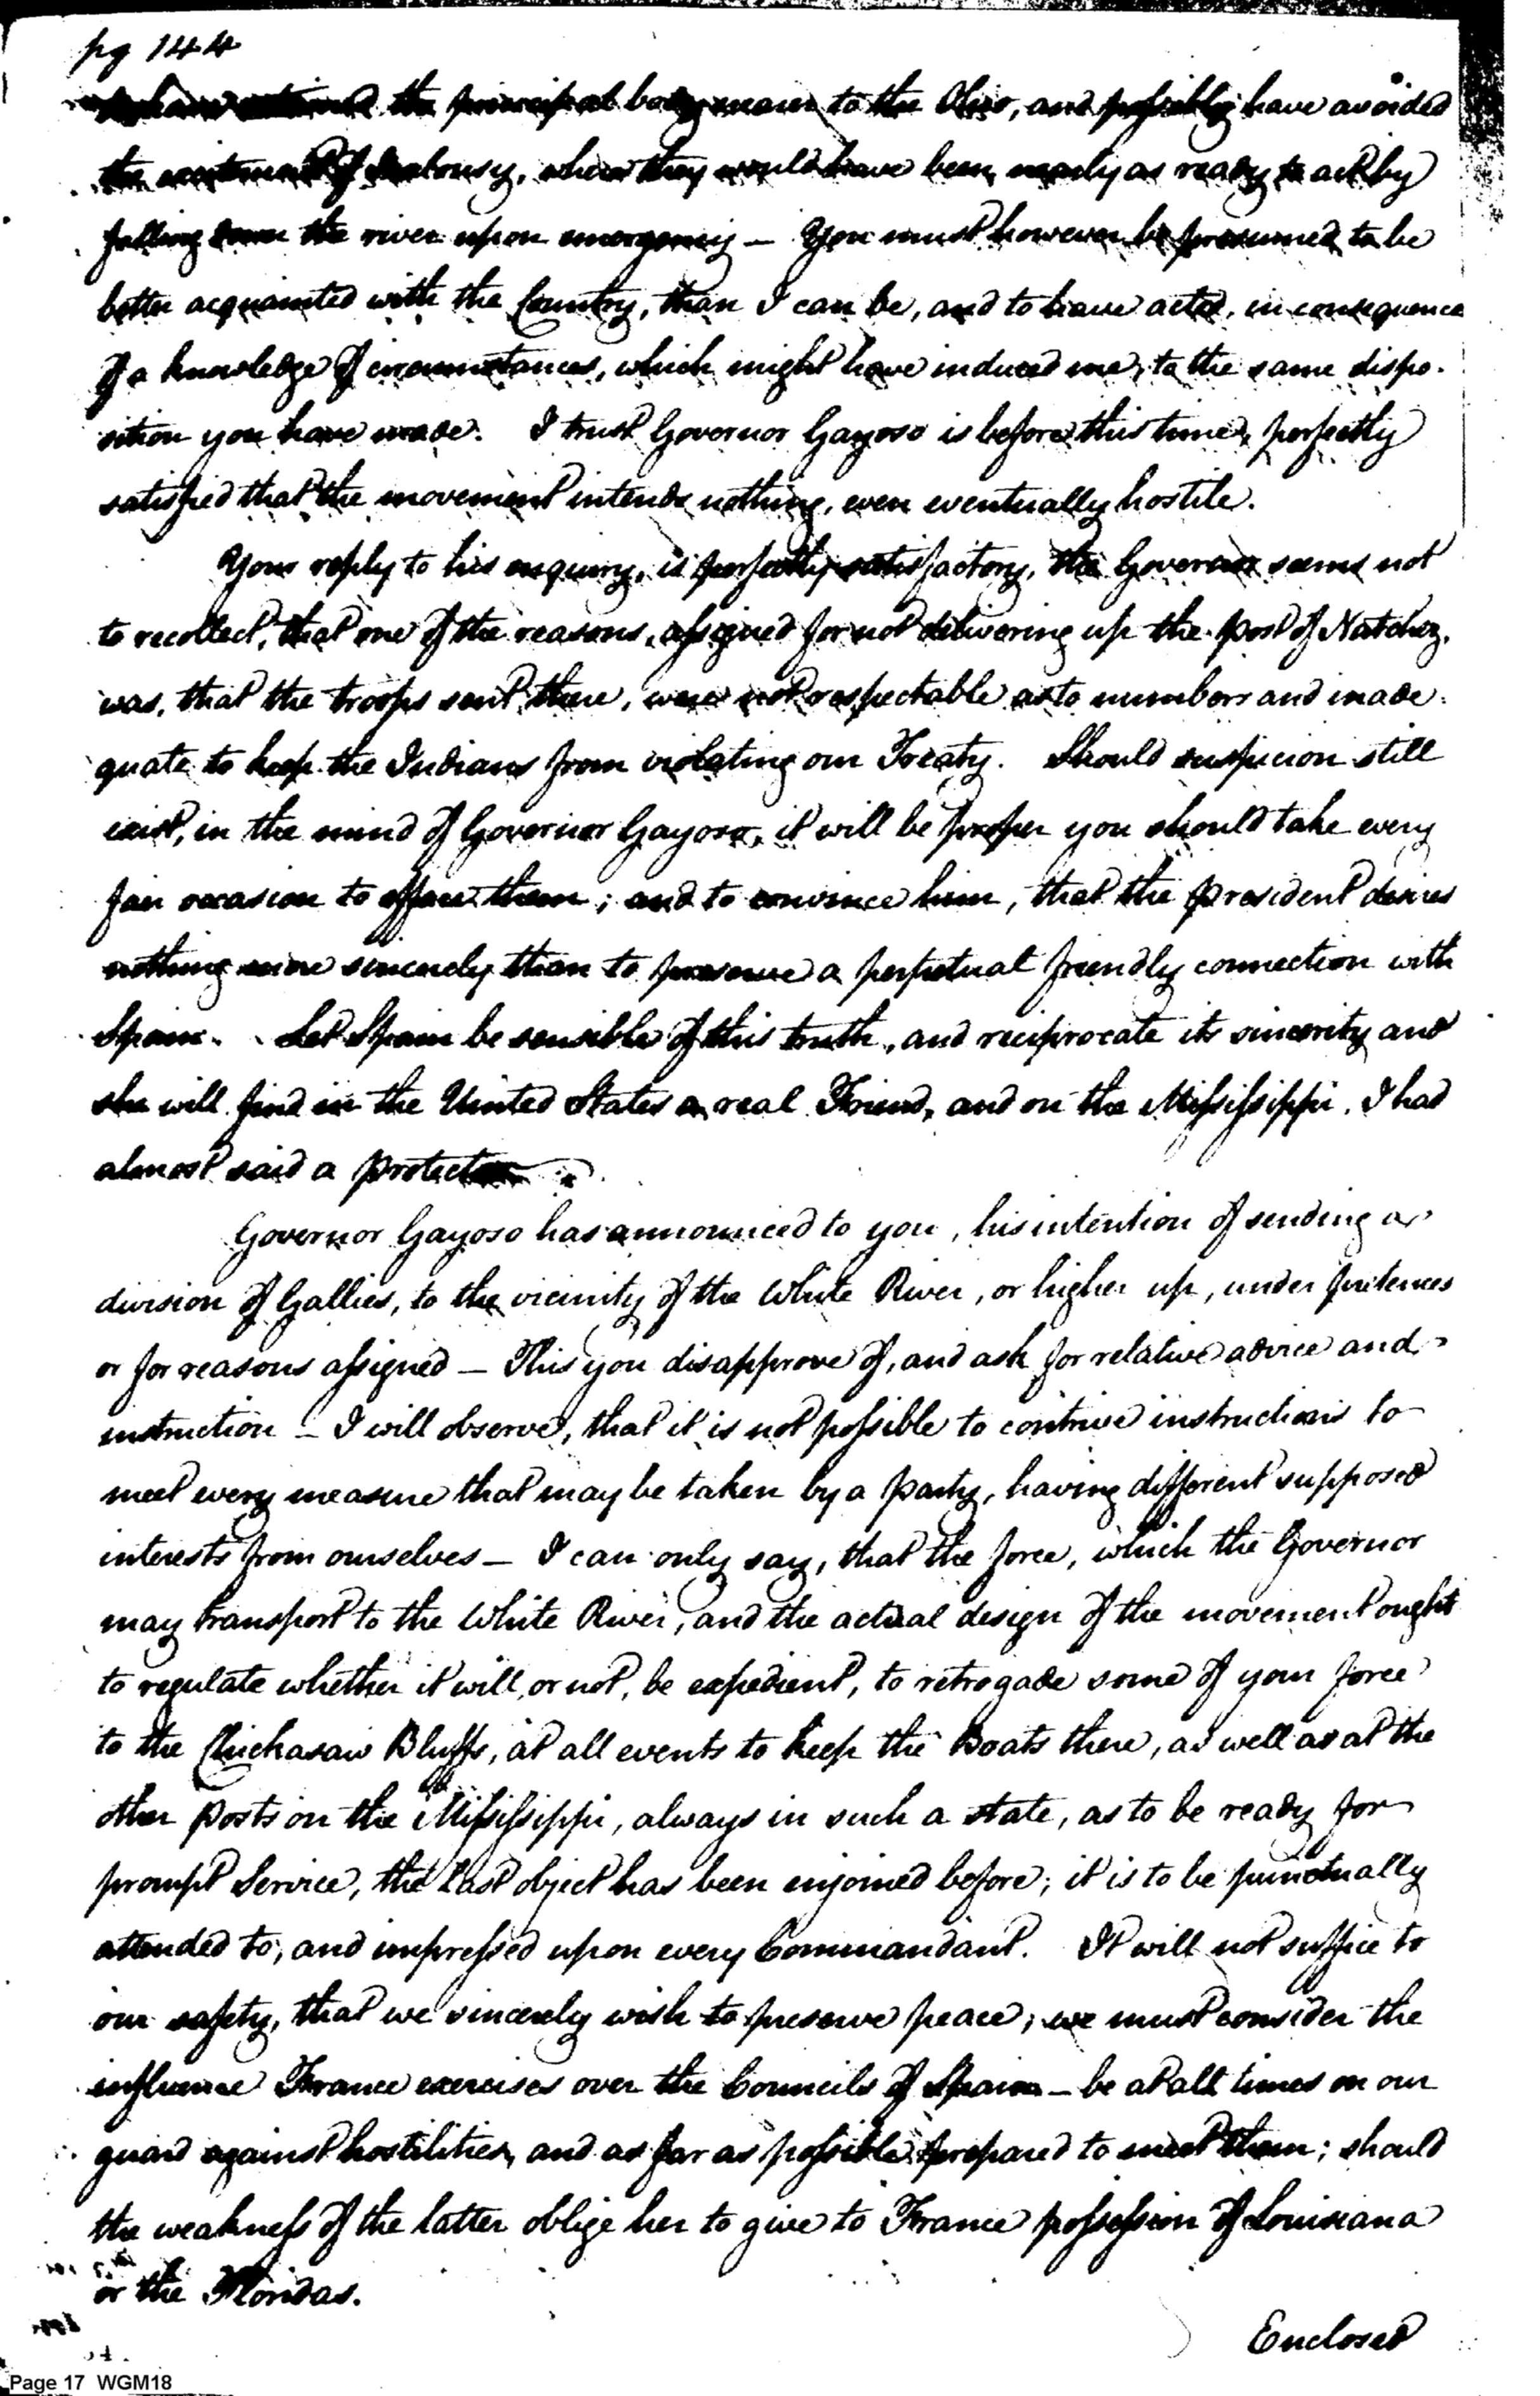 pg 144
the principal body nearer to the Ohio, and possibly have avoided
the excitement of Jealousy, where they would have been nearly as ready to act by
falling down the river upon emergency — You must however be presumed to be
better acquainted with the Country, than I can be, and to have acted, in consequence
of a knowledge of circumstances, which might have induced me, to the same dispo-
sition you have made. I trust Governor Gayoso is before this time, perfectly
satisfied that the movement intends nothing, even eventually hostile.
Your reply to his enquiry, is perfectly satisfactory, the Governor seems not
to recollect, that one of the reasons, assigned for not delivering up the post of Natchez,
was, that the troops sent there, were not respectable as to numbers and inade-
quate to keep the Indians from violating our Treaty. Should suspicion still
exist, in the mind of Governor Gayoso, it will be proper you should take every
fair occasion to efface them; and to convince him, that the President desires
nothing more sincerely than to preserve a perpetual friendly connection with
Spain. Let Spain be sensible of this truth, and reciprocate its sincerity and
she will find in the United States a real Friend, and on the Mississippi, I had
almost said a protector.
Governor Gayoso has announced to you, his intention of sending a
division of Gallies, to the vicinity of the White River, or higher up, under pretences
or for reasons assigned — This you disapprove of, and ask for relative advice and
instruction — I will observe, that it is not possible to contrive instructions to
meet every measure that may be taken by a party, having different supposed
interests from ourselves — I can only say, that the force, which the Governor
may transport to the White River, and the actual design of the movement ought
to regulate whether it will, or not, be expedient, to retrogade some of your force
to the Chickasaw Bluffs, at all events to keep the Boats there, as well as at the
other posts on the Mississippi, always in such a state, as to be ready for
prompt Service, the last object has been enjoined before; it is to be punctually
attended to, and impressed upon every Commandant. It will not suffice to
our safety, that we sincerely wish to preserve peace; we must consider the
influence France exercises over the Councils of Spain — be at all times on our
guard against hostilities, and as far as possible prepared to meet them; should
the weakness of the latter oblige her to give to France possession of Louisiana
or the Floridas.
Enclosed
Page 17 WGM18